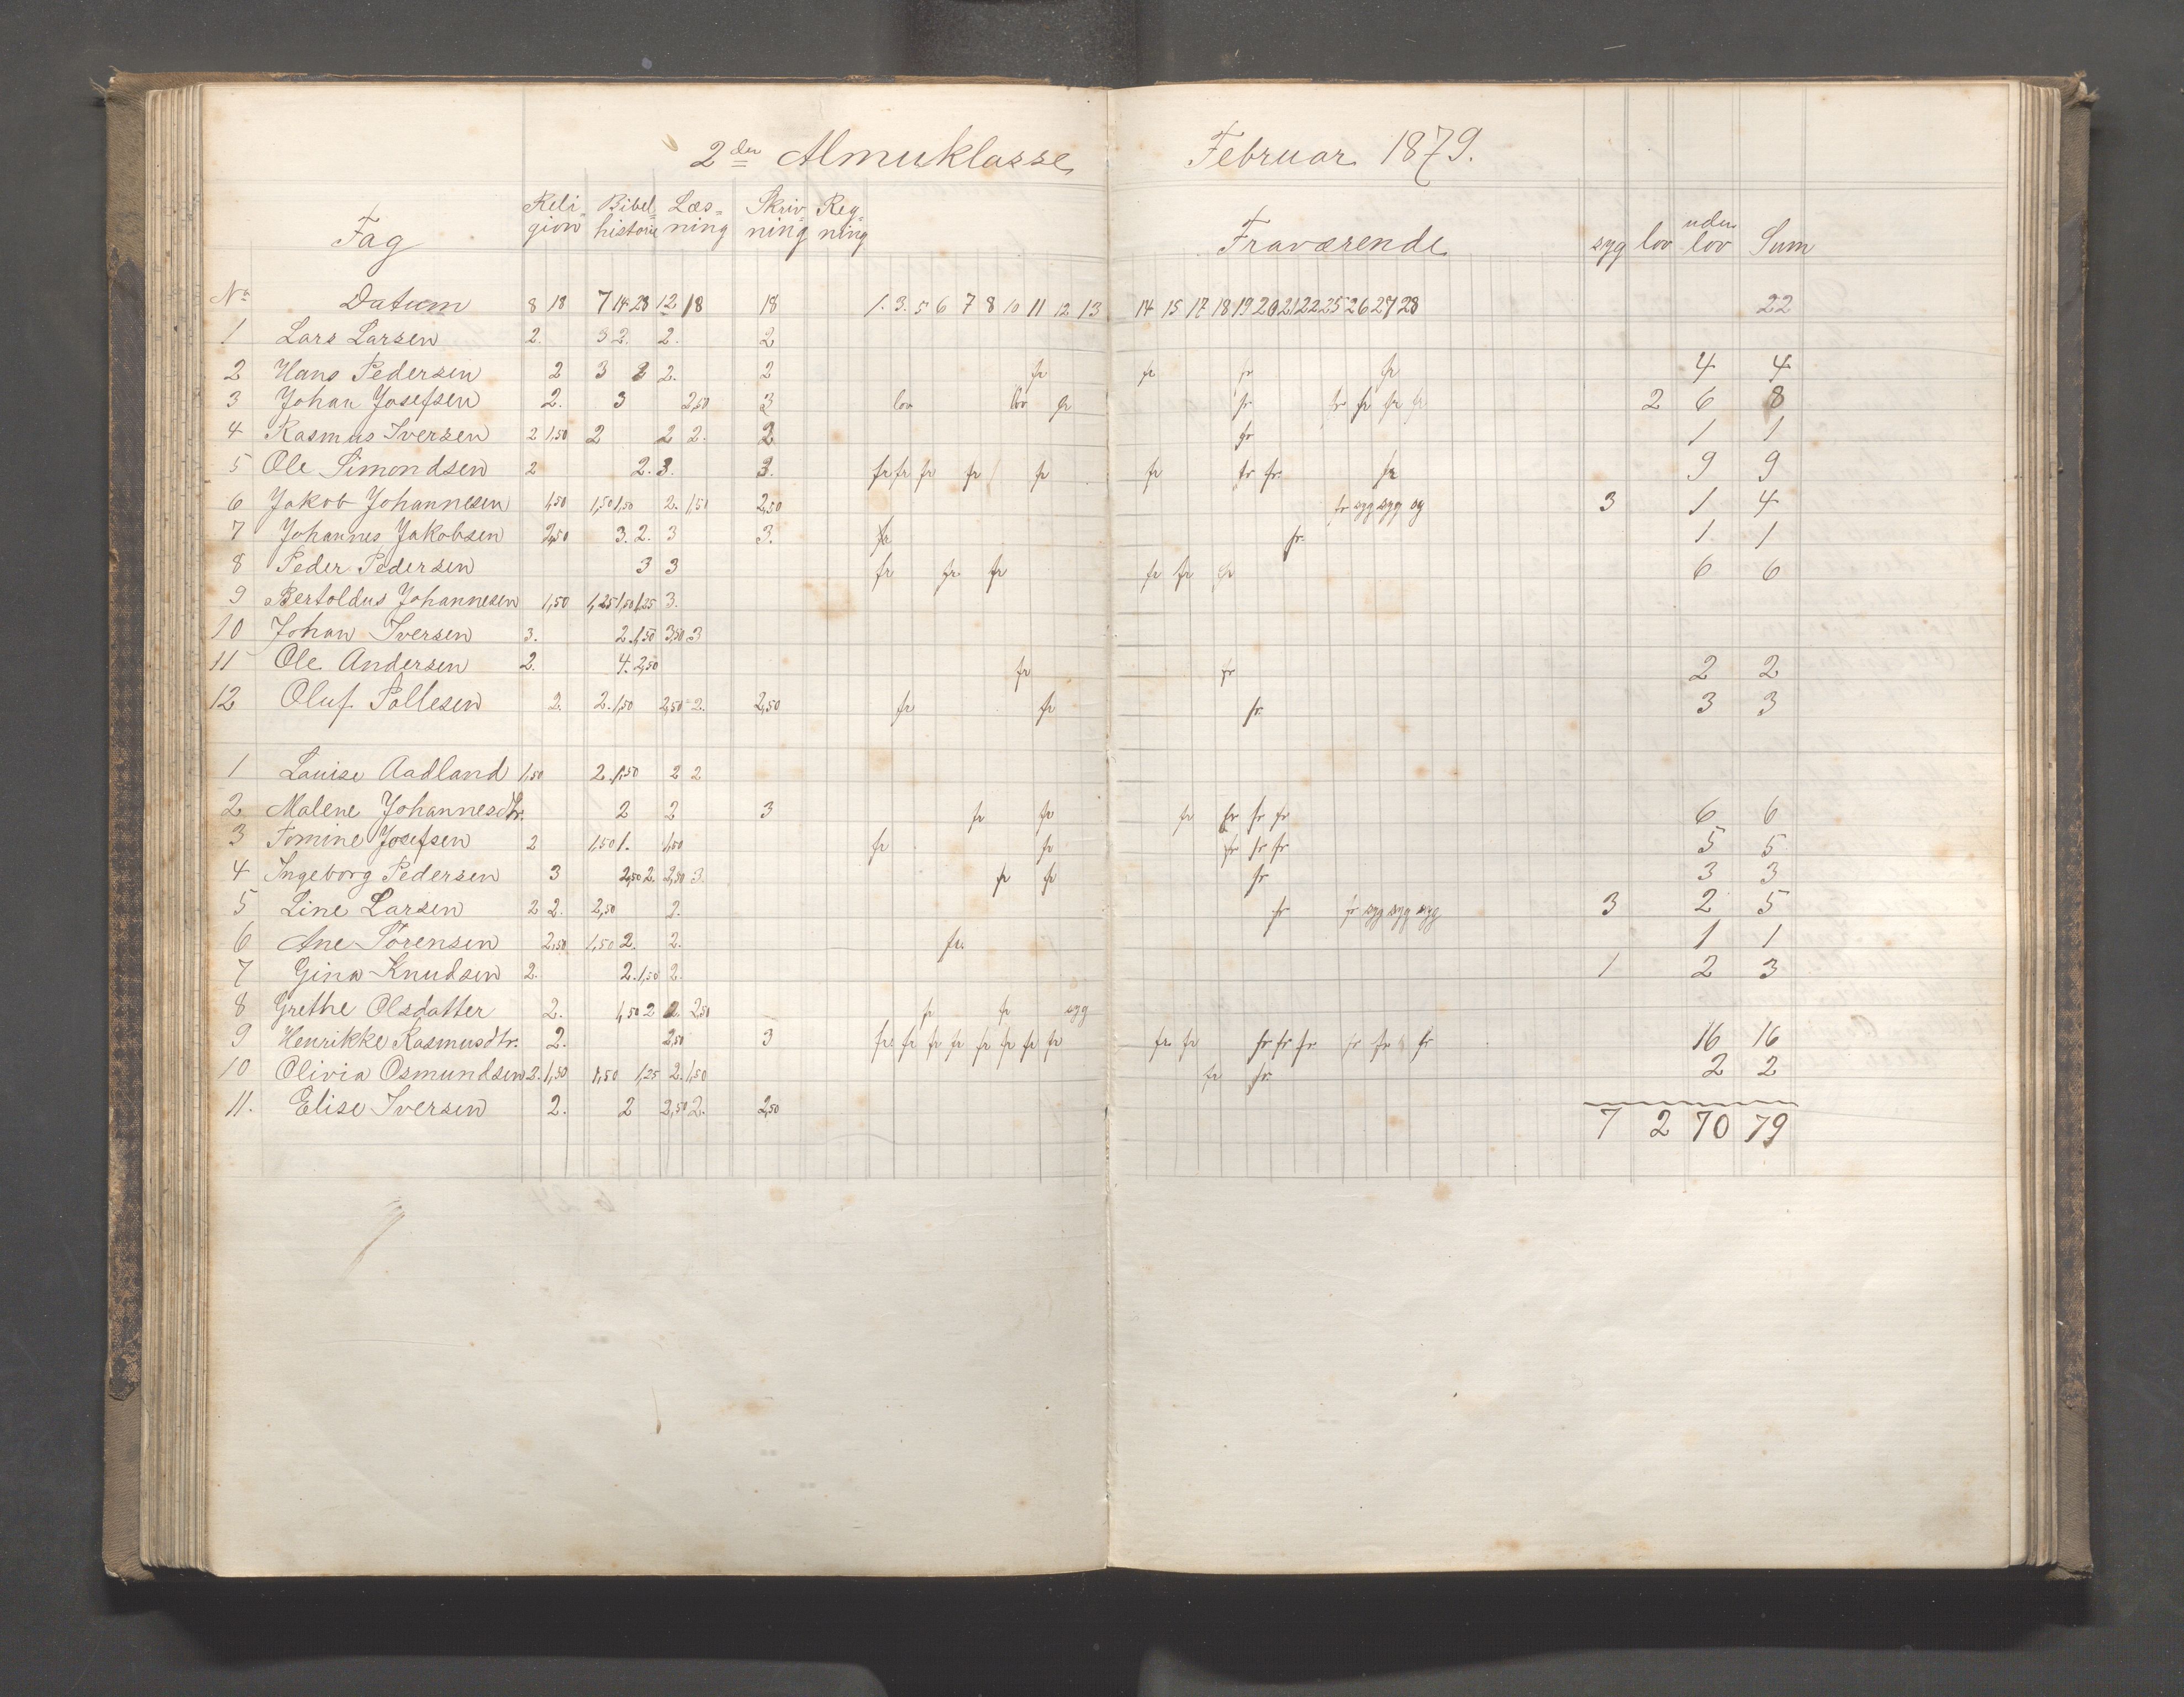 2den Almuklasse Februar 1879.
Fag Religion Bibelhistorie Læsning Skrivning Regning Fraværende syg lov uden lov Sum
No Datum 8 18 7 14 28 12 18 18 1. 3. 5 6 7 8 10 11 12 13 14 15 17 18 19 20 21 22 25 26 27 28 22
1 Lars Larsen 2. 3 2. 2. 2
2 Hans Pedersen 2 3 2 2. 2 fr fr fr fr 4 4
3 Johan Josefsen 2. 3 2,50 3 lov lov fr fr fr fr fr fr 2 6 8
4 Rasmus Iversen 2 1,50 2 2 2. 2 fr 1 1
5 Ole Simondsen 2 2. 3. 3. fr fr fr fr fr fr fr fr. fr 9 9
6 Jakob Johannesen 1,50 1,50 1,50 2. 1,50 2,50 fr syg syg sy 3 1 4
7 Johannes Jakobsen 2,50 3. 2. 3 3. fr. 1 1
8 Peder Pedersen 3 3 fr fr fr fr fr fr 6 6
9 Bertoldus Johannesen 1,50 1,25 1,50 1,25 3.
10 Johan Iversen 3. 2. 1,50 3,50 3
11 Ole Andersen 2. 4. 2,50 fr fr 2 2
12 Oluf Pallesen 2. 2. 1,50 2,50 2. 2,50 fr fr fr. 3 3
1 Lauise Aadland 1,50 2. 1,50 2 2
2 Malene Johannesdtr. 2 2 3 fr fr fr fr fr fr 6 6
3 Tomine Josefsen 2 1,50 1. 1,50 fr fr fr fr fr 5 5
4 Ingeborg Pedersen 3 2,50 2. 2,50 3. fr fr fr 3 3
5 Line Larsen 2 2. 2,50 2. fr fr syg syg syg 3 2 5
6 Ane Sörensen 2,50 1,50 2. 2. fr. 1 1
7 Gina Knudsen 2. 2. 1,50 2. 1 2 3
8 Grethe Olsdatter 2. 1,50 2 2. 2,50 fr fr syg
9 Henrikke Rasmusdtr. 2. 2,50 3 fr fr fr fr fr fr fr fr fr fr fr fr fr fr fr fr 16 16
10 Olivia Osmundsen 2. 1,50 1,50 1,25 2. 1,50 fr fr. 2 2
11. Elise Iversen 2. 2 2,50 2. 2,50
7 2 70 79